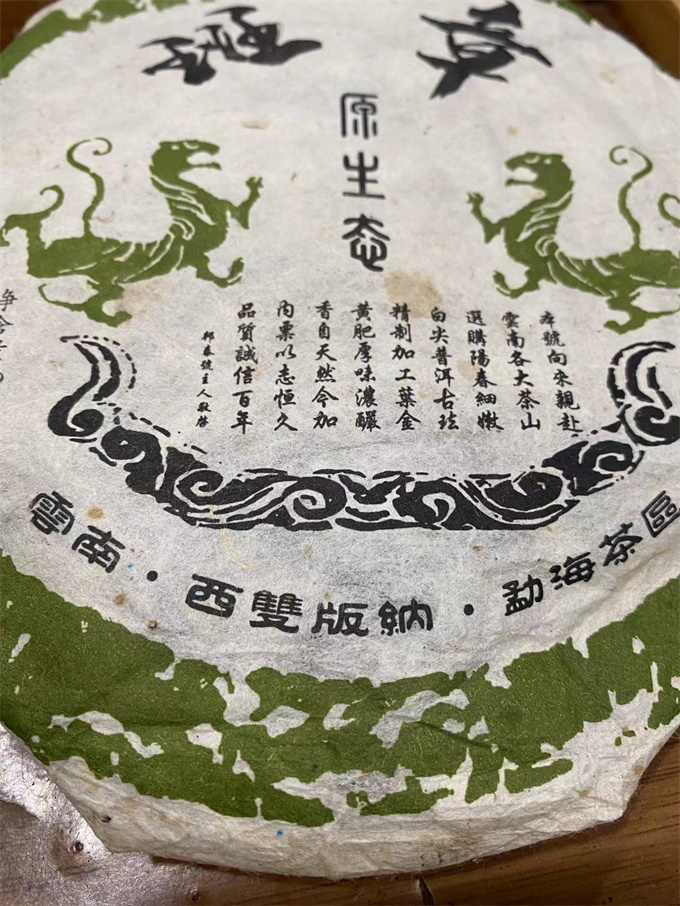 原生态
本號向來親赴
雲南各大茶山
選購陽春細嫩
白尖普洱古珐
精制加工葉金
黄肥厚味濃釅
香自天然今加
内票以志恒久
品質誠信百年
邦泰號主人敬啓
净含
雲南·西雙版納·勐海茶區